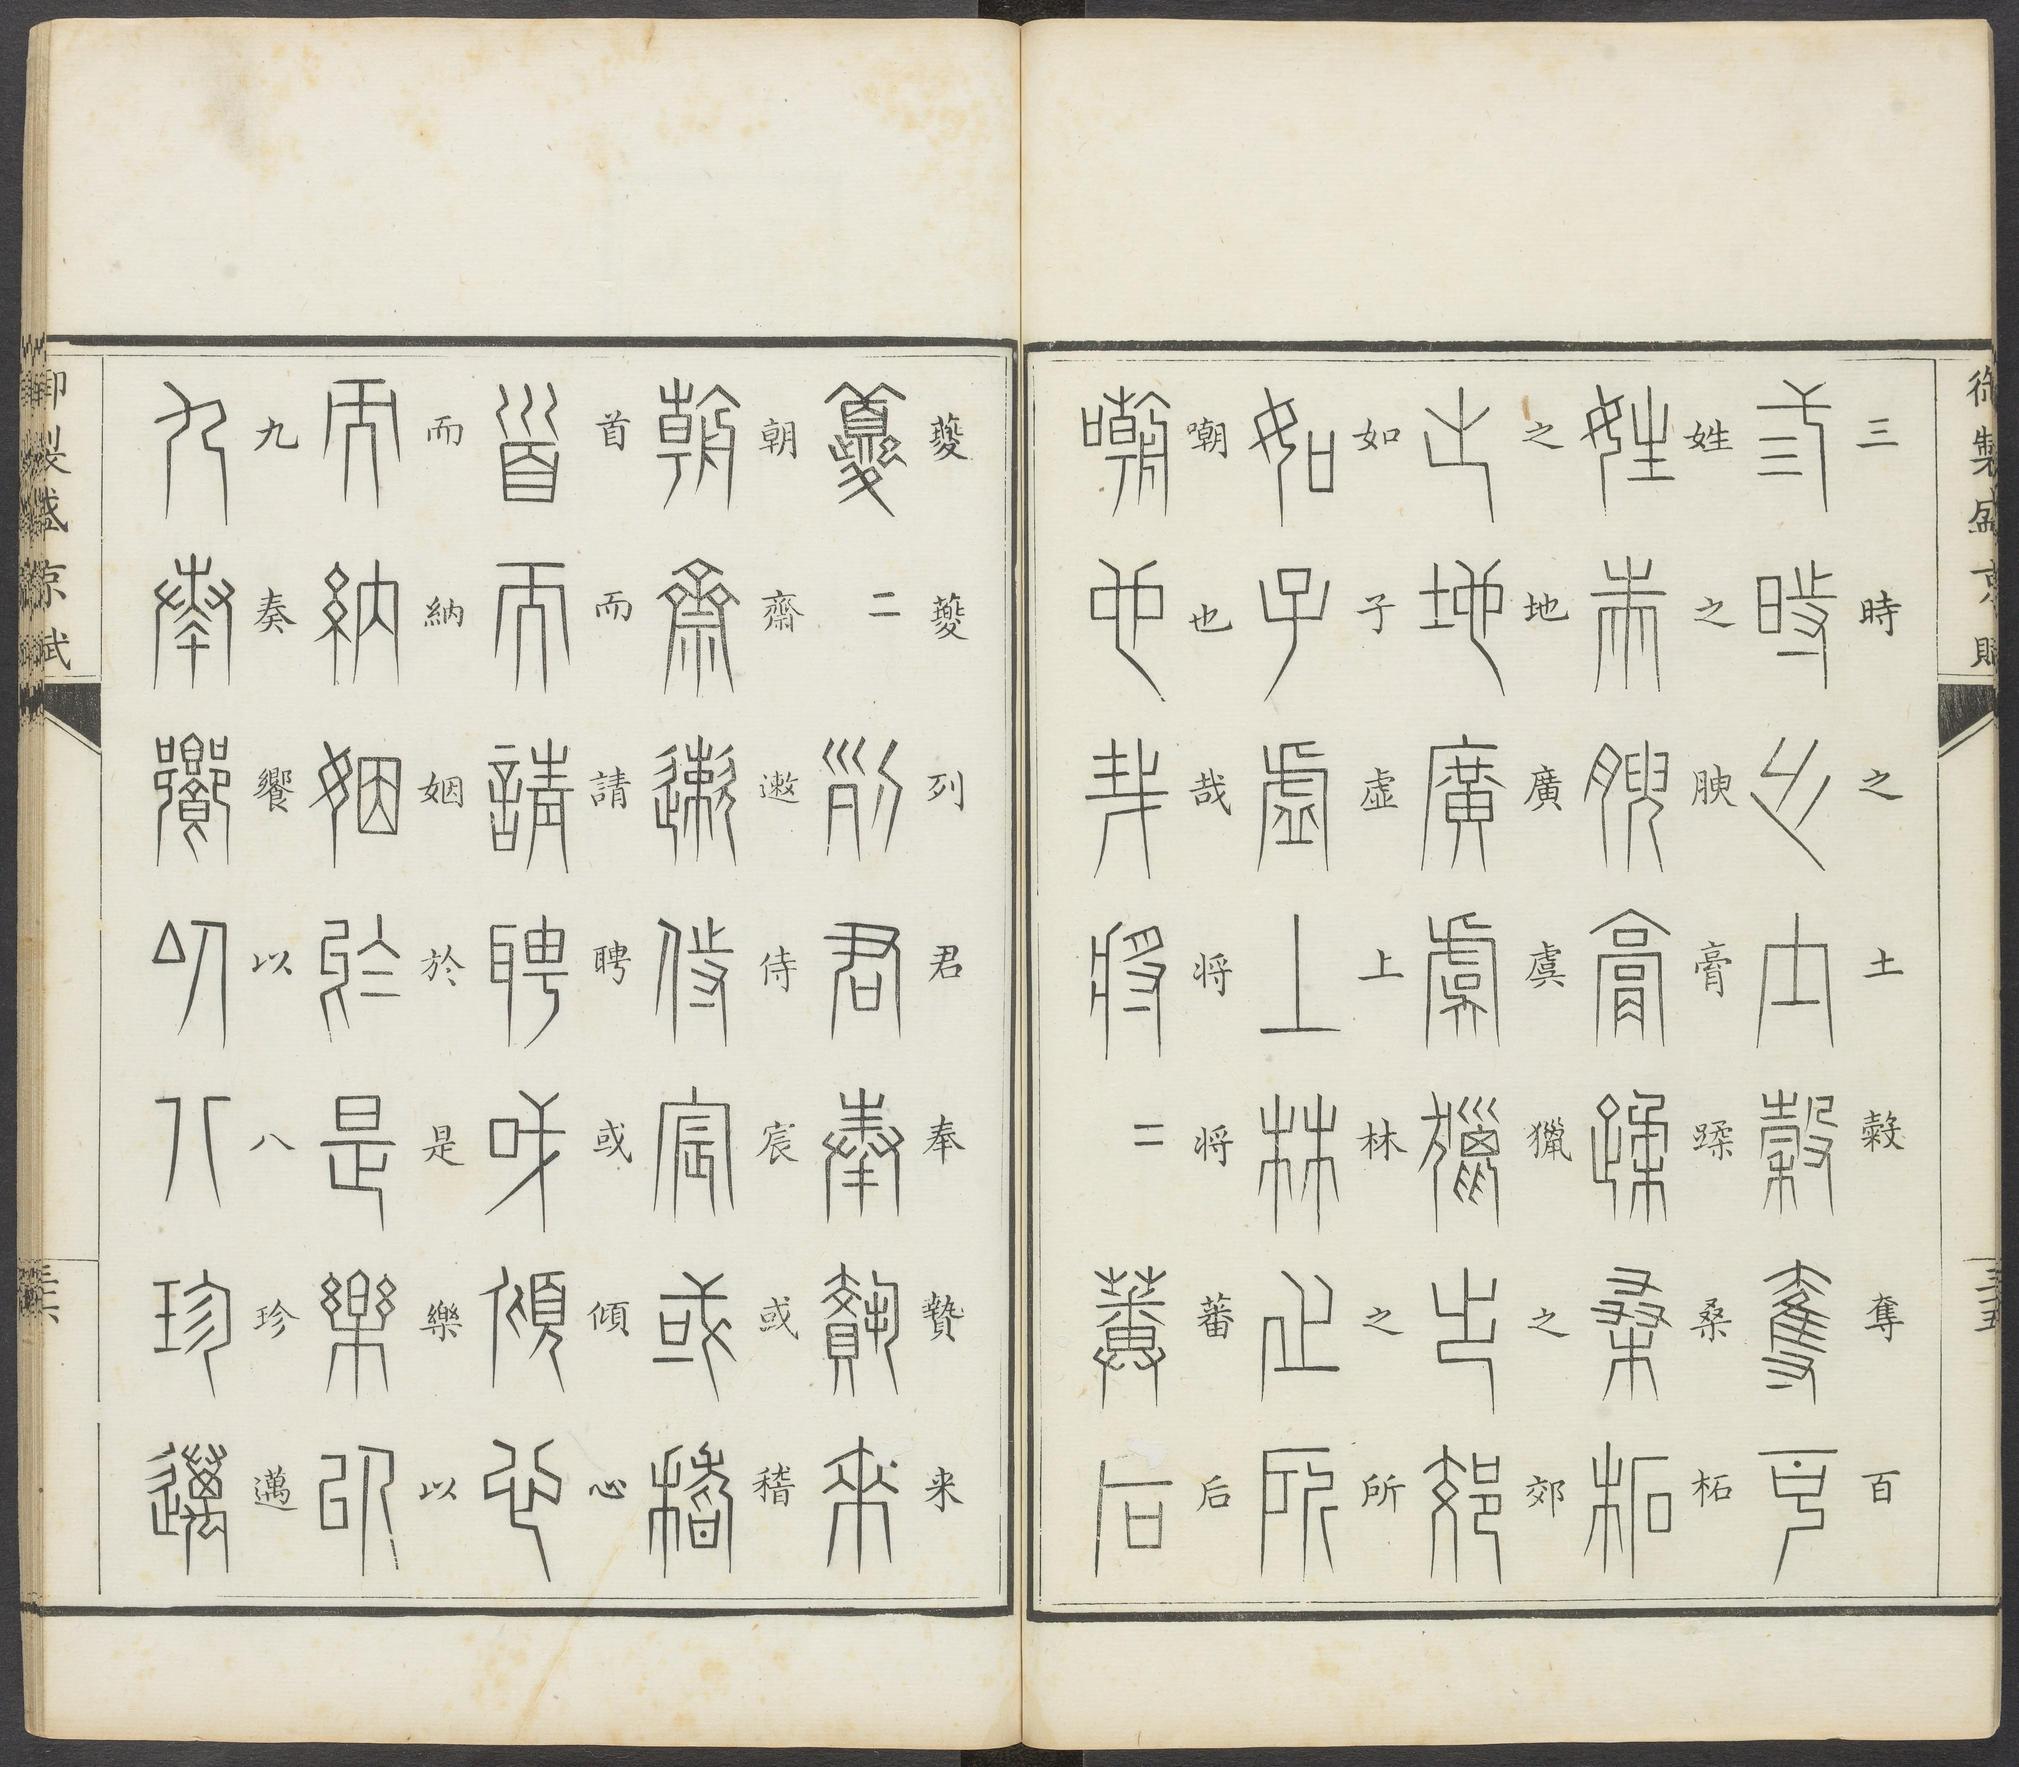 御製盛京賦
三時之土穀奪百
姓之腴膏蹂桑柘
之地廣虞獵之郊
如子虛上林之所
嘲也哉將將蕃后
三十五
夔夔列君奉贄来
朝齋遬侍宸或稽
首而請聘或傾心
而納姻於是樂以
九奏饗以八珍邁
御製盛京賦